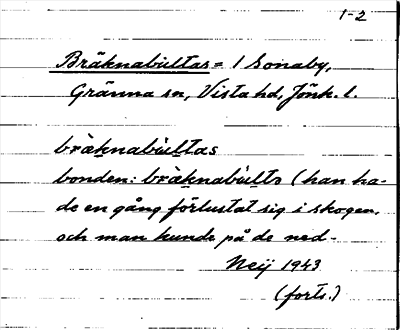 1-2
Bräknabultas = 1 Sonaby,
Gränna sn, Vista hd, Jönk. l.
bràknabùltas
bonden: bràknabùlts (han ha-
de en gång förlustat sig i skogen,
och man kunde på de ned-
Neij 1943
(forts.)